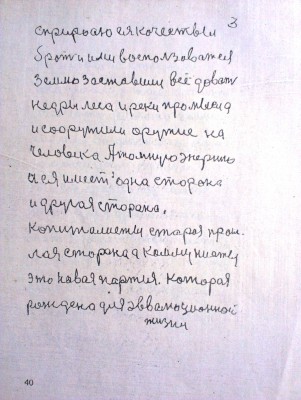 3
с природою ея качествы и
брати или воспользоватся
Землю заставили всё довать
недры леса и реки
и соорутили орутие на
человека Атомную энергию
и ея имеет одна сторона
и другая сторона,
Копиталисты старая
лая сторона а Коммунисты
это новая партия. Которая
рождена для эвалюционной
жизни
40